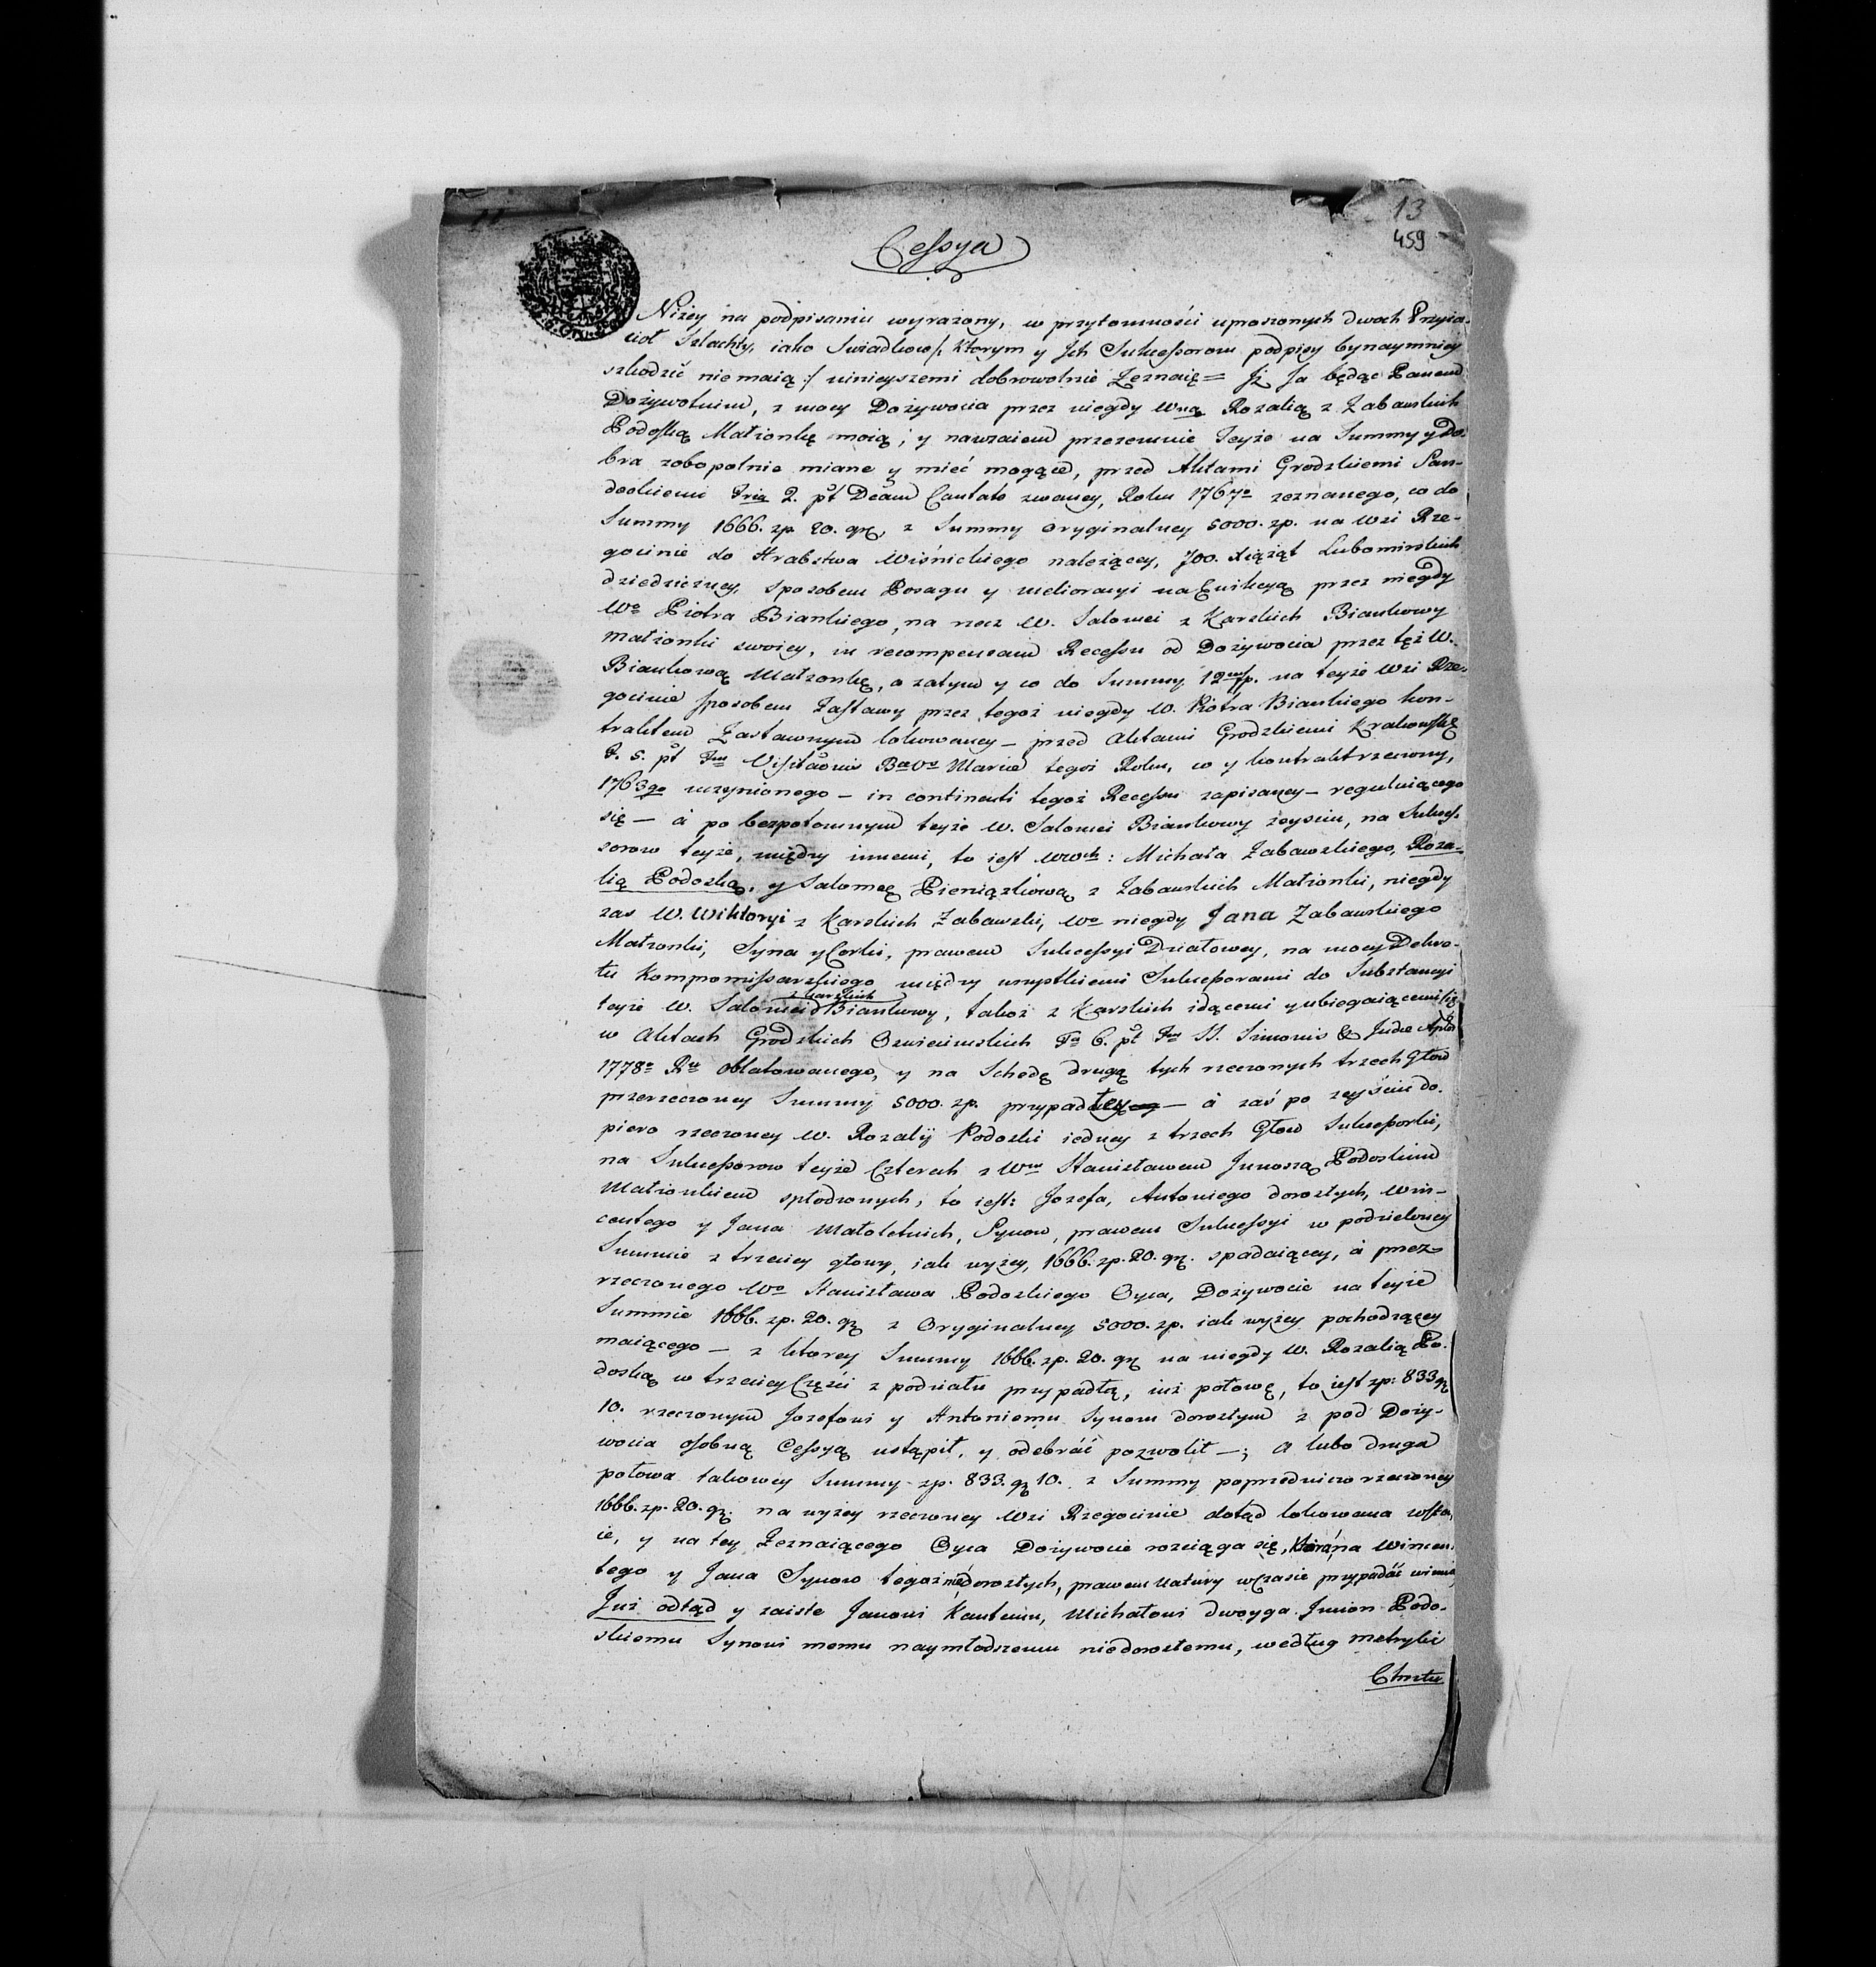 13
459
Cessya
Niżey na podpisaniu wyrażony, w przytomności uproszonych dwoch Przyia-
cioł Szlachty, iako Swiadkow /: ktorym y Jch Sukcessorom podpisy bynaymniey
szkodzić nie maią :/ ninieyszemi dobrowolnie Zeznaię = Jż Ja będąc Panem
Dożywotnim, z mocy Dożywocia przez niegdy Wną Rozalią z Żabawskich
Podoską Małżonkę moią, y nawzaiem przezemnie Teyże na Summy y Do-
bra zobopolnie miane y mieć mogące, przed Aktami Grodzkiemi San-
deckiemi Fria 2. pt Dcam Cantate zwaney, Roku 1767o zeznanego, co do
Summy 1666. zp. 20. gr, z Summy oryginalney 5000. zp. na Wsi Rze-
gocinie do Hrabstwa Wiśnickiego należącey, JOO. Xiążąt Lubomirskich
dziedziczney, sposobem Posagu y melioracyi na Ewikcyą przez niegdy
Wo Piotra Biankiego, na rzecz W. Salomei z Karskich Biankowy
Małżonki swoiey, in recompensam Recessu od Dożywocia przez tęż W.
Biankową Małżonkę, a zatym y co do Summy 12 m/zp. na teyże Wsi Rze-
gocinie sposobem Zastawy przez tegoż niegdy W. Piotra Biankiego kon-
traktem Zastawnym lokowaney — przed Aktami Grodzkiemi Krakowskie
F. 5. pt Fm Visitaonis Bae Vs Mariae tegoż Roku, co y kontrakt rzeczony,
1763go uczynionego — in continenti tegoż Recessu zapisaney — reguluiącego
się — à po bezpotomnym teyże W. Salomei Biankowy zeysciu, na Sukces-
sorow teyże, między innemi, to iest WWch: Michała Żabawskiego, Roza-
lią Podoską, y Salomeę Pieniążkową z Żabawskich Małżonki, niegdy
zas W. Wiktoryi z Karskich Żabawski, Wo niegdy Jana Żabawskiego
Małżonki, Syna y Corki, prawem Sukcessyi Działowey, na mocy Dekre-
tu Kompromissarskiego między wszystkiemi Sukcessorami do Substancyi
teyże W. Salomei z Karskich Biankowy, takoż z Karskich idącemi y ubiegaiącemi się
w Aktach Grodzkich Oswiecimskich Fa 6. pt Fm SS. Simonis & Judae Aplor
1778o Ru oblatowanego, y na Schedę drugą tych rzeczonych trzech Głow
przerzeczoney Summy 5000. zp. przypadłey — à zaś po zeyściu do-
piero rzeczoney W. Rozalij Podoski iedney z trzech Głow Sukcessorki,
na Sukcessorow teyże Czterech z Wm Stanisławem Junoszą Podoskim
Małżonkiem spłodzonych, to iest: Jozefa, Antoniego dorosłych, Win-
centego y Jana Małoletnich, Synow, prawem Sukcessyi w podzieloney
Summie z trzeciey głowy, iak wyżey, 1666. zp. 20. gr. spadaiącey, à przez
rzeczonego Wo Stanisława Podoskiego Oyca, Dożywocie na teyże
Summie 1666. zp. 20. gr z Oryginalney 5000. zp. iak wyżey pochodzącey
maiącego — z ktorey Summy 1666. zp. 20. gr na niegdy W. Rozalią Po-
doską w trzeciey Części z podziału przypadłą, iuż połowę, to iest zp: 833 gr
10. rzeczonym Jozefowi y Antoniemu Synom dorosłym z pod Doży-
wocia osobną Cessyą ustąpił, y odebráć pozwolił —; A lubo druga
połowa takowey Summy zp. 833. gr 10. z Summy poprzedniczo rzeczoney
1666. zp. 20. gr. na wyżey rzeczoney Wsi Rzegocinie dotąd lokowana
ie, y na tey Zeznaiącego Oyca Dożywocie rozciąga się, ktorá na Wincen-
tego y Jana Synow tegoż niedorosłych, prawem Natury wczasie przypadáć winna,
Już odtąd y zaiste Janowi Kantemu, Michałowi dwoyga Jmion Podo-
skiemu Synowi memu naymłodszemu niedorosłemu, według metryki
Chrztu